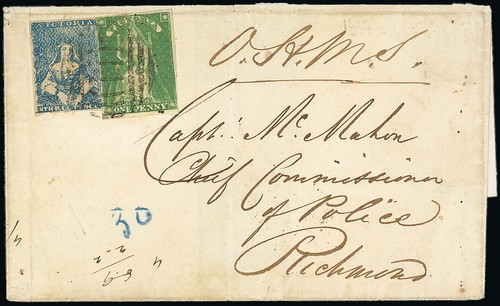 VICTORIA
THREE PENCE
VICTORIA
ONE PENNY
O.H.M.S.
Capt: Mc.Mahon
Chief Commissioner
of Police
Richmond
30